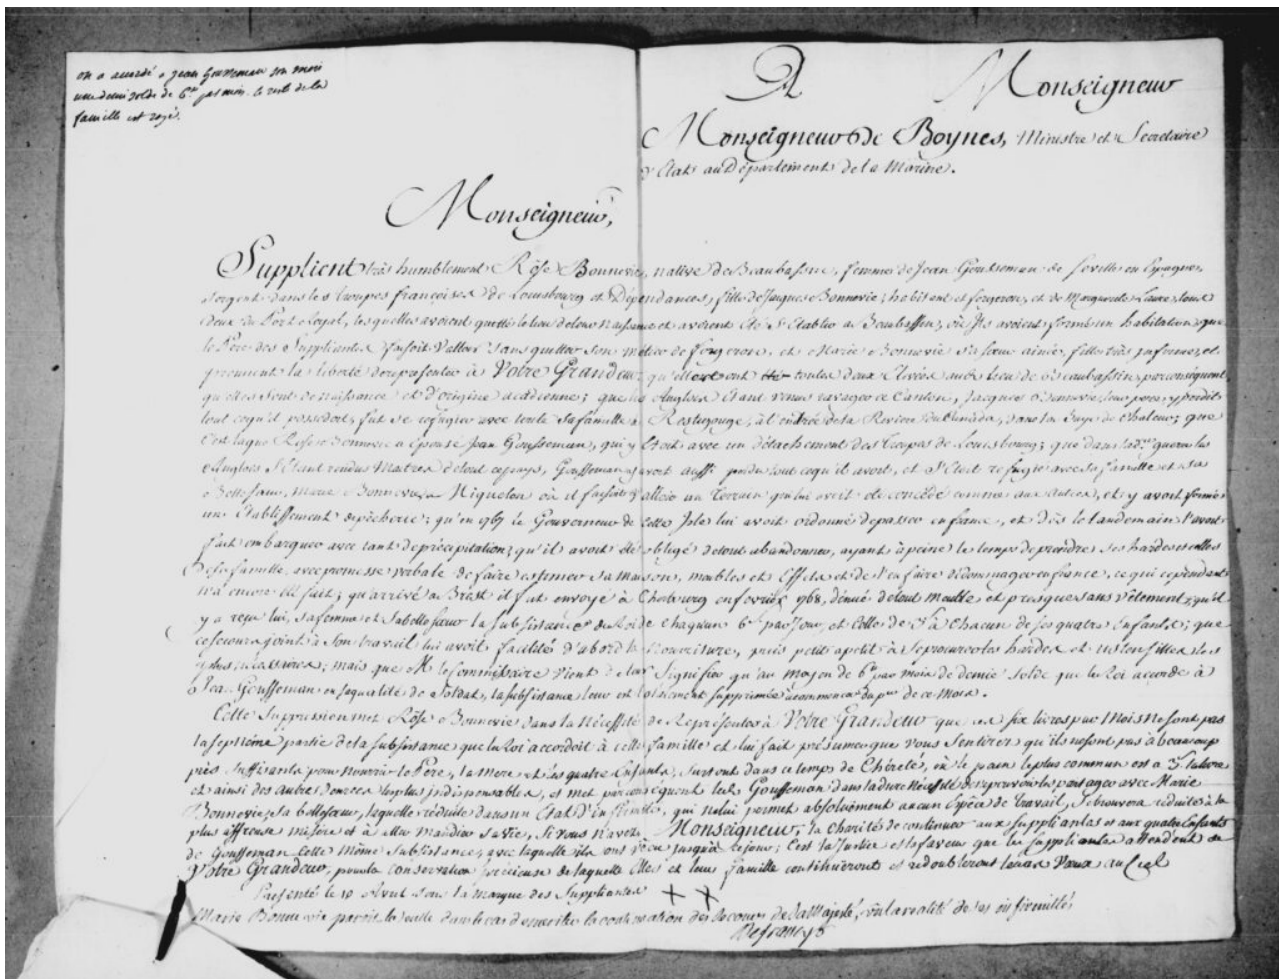 on a accordé a jean Gousseman son mari
une demi solde de 6ᵗᵗ par mois. le reste de la
famille est rayé.
A Monseigneur
Monseigneur de Boynes, Ministre et Secretaire
d'Etat au Département de la Marine.
Monseigneur,
Supplient très humblement Rose Bonnevie, native de Beaubassin, femme de Jean Gousseman de Seville en Espagne,
Sergent dans les troupes françoises de Louisbourg et Dépendances, fille de Jacques Bonnevie, habitant et forgeron, et de Marguerite Laure, tous
deux du Port Royal, lesquelles avoient quitté le lieu de leur naissance et avoient été s'Etablir a Beaubassin, où ils avoient formé un habitation que
le Pere des Suppliantes faisoit valloir sans quitter son métier de forgeron, et Marie Bonnevie sa sœur ainée, fille très infirme, et
prennent la liberté de représenter à Votre Grandeur qu'elles ont toutes deux Elevées audit lieu de Beaubassin, par conséquent
qu'elles sont de naissance et d'origine acadienne; que les Anglois Etant venus ravager ce Canton, Jacques Bonnevie, leur pere, y perdit
tout ce qu'il possedoit, fut se refugier avec toute sa famille a Restigouge, à l'entrée de la Riviere du Canada, dans la Baye de Chaleur; que
c'est la que Rose Bonnevie a épousé Jean Gousseman, qui y Etoit avec un détachement des Troupes de Louisbourg; que dans la dʳᵉ guerre les
Anglois s'Etant rendus Maitres de tout ce pays, Gousseman y avoit aussi perdu tout ce qu'il avoit, et s'Etoit refugié avec sa famille et sa
Bellesœur, Marie Bonnevie a Miquelon où il faisoit valloir un terrain qui lui avoit été concédé comme aux autres, et y avoit formé
un Etablissement de pêcherie; qu'en 1767 le Gouverneur de cette Isle lui avoit ordonné de passer en france, et dès le landemain l'avoit
fait embarquer avec tant de précipitation, qu'il avoit été obligé de tout abandonner, ayant à peine le temps de prendre ses hardes et celles
de sa famille, avec promesse verbale de faire estimer sa maison, meubles et Effets et de l'en faire dédommager en france, ce qui cependant
n'a encore été fait; qu'arrivé a Brest il fut envoyé à Cherbourg en fevrier 1768, dénué de tout meuble et presque sans vêtement; qu'il
y a reçu lui, sa femme et sa bellesœur la subsistance du Roi de chaqun 6ˢ par Jour, et celle de 3ˢ à chacun de ses quatre Enfants; que
ce secours joint à son travail lui avoit facilité d'abord la nourriture, puis petit à petit à se procurer les hardes et ustensilles les
plus nécessaires; mais que M. le Commissaire vient de leur signifier qu'au moyen de 6ᵗᵗ par mois de demie solde que le Roi accorde à
Jean Gousseman en sa qualité de Soldat, la subsistance leur est totalement supprimée a commencer du pᵉʳ de ce mois.
Cette suppression met Rose Bonnevie dans la nécessité de Représenter à Votre Grandeur que ces six livres par Mois ne sont pas
la septième partie de la subsistance que le Roi accordoit à cette famille et lui fait présumer que vous sentirez qu'ils ne sont pas à beaucoup
près suffisants pour nourrir le Pere, la mere et les quatre Enfants, surtout dans ce temps de Chèreté, où le pain le plus commun est a 3ˢ la livre
et ainsi des autres denrées les plus indispensables, et met par conséquent led. Gousseman dans la dure nécessité de ne pouvoir les partager avec Marie
Bonnevie, sa bellesœur, laquelle réduite dans un Etat d'infirmité, qui ne lui permet absolument aucun Espèce de travail, se trouvera réduite à la
plus affreuse misere et à aller mandier sa vie, si vous n'avez Monseigneur, la charité de continuer aux suppliantes et aux quatre Enfants
de Gousseman cette même subsistance, avec laquelle ils ont vécu jusqu'à ce jour; C'est la Justice et la faveur que les suppliantes attendent de
Votre Grandeur, pour la conservation précieuse de laquelle Elles et leur famille continueront et redoubleront leurs vœux au Ciel
Présenté le 10 Avril sous la marque des Suppliantes + +
Marie Bonnevie paroit la seule dans le cas de meriter la continuation des secours de Sa Majesté, vu la realité de ses infirmités